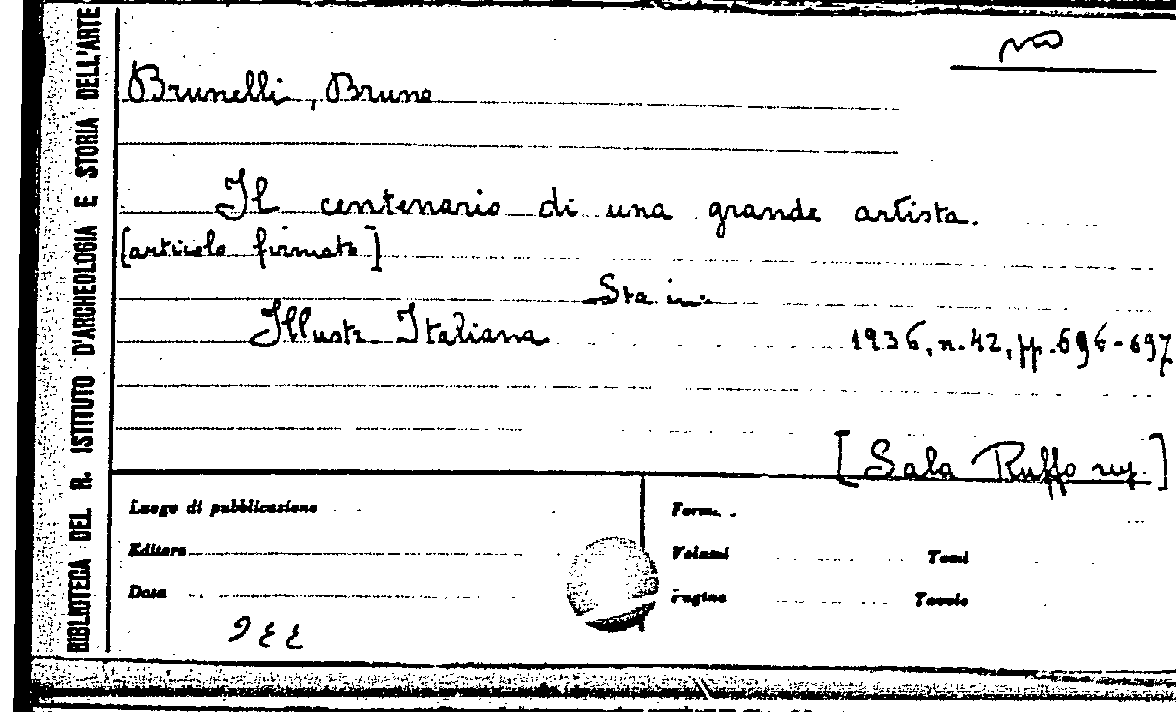 BIBLIOTECA DEL R. ISTITUTO D'ARCHEOLOGIA E STORIA DELL'ARTE
Brunelli, Bruno
Il centenario di una grande artista.
[articolo firmato]
Sta in:
Illustr. Italiana 1936, n. 42, pp. 696-697
[Sala Ruffo
Luogo di pubblicazione
Form.
Editore
Volumi Tomi
Data
Pagine Tavole